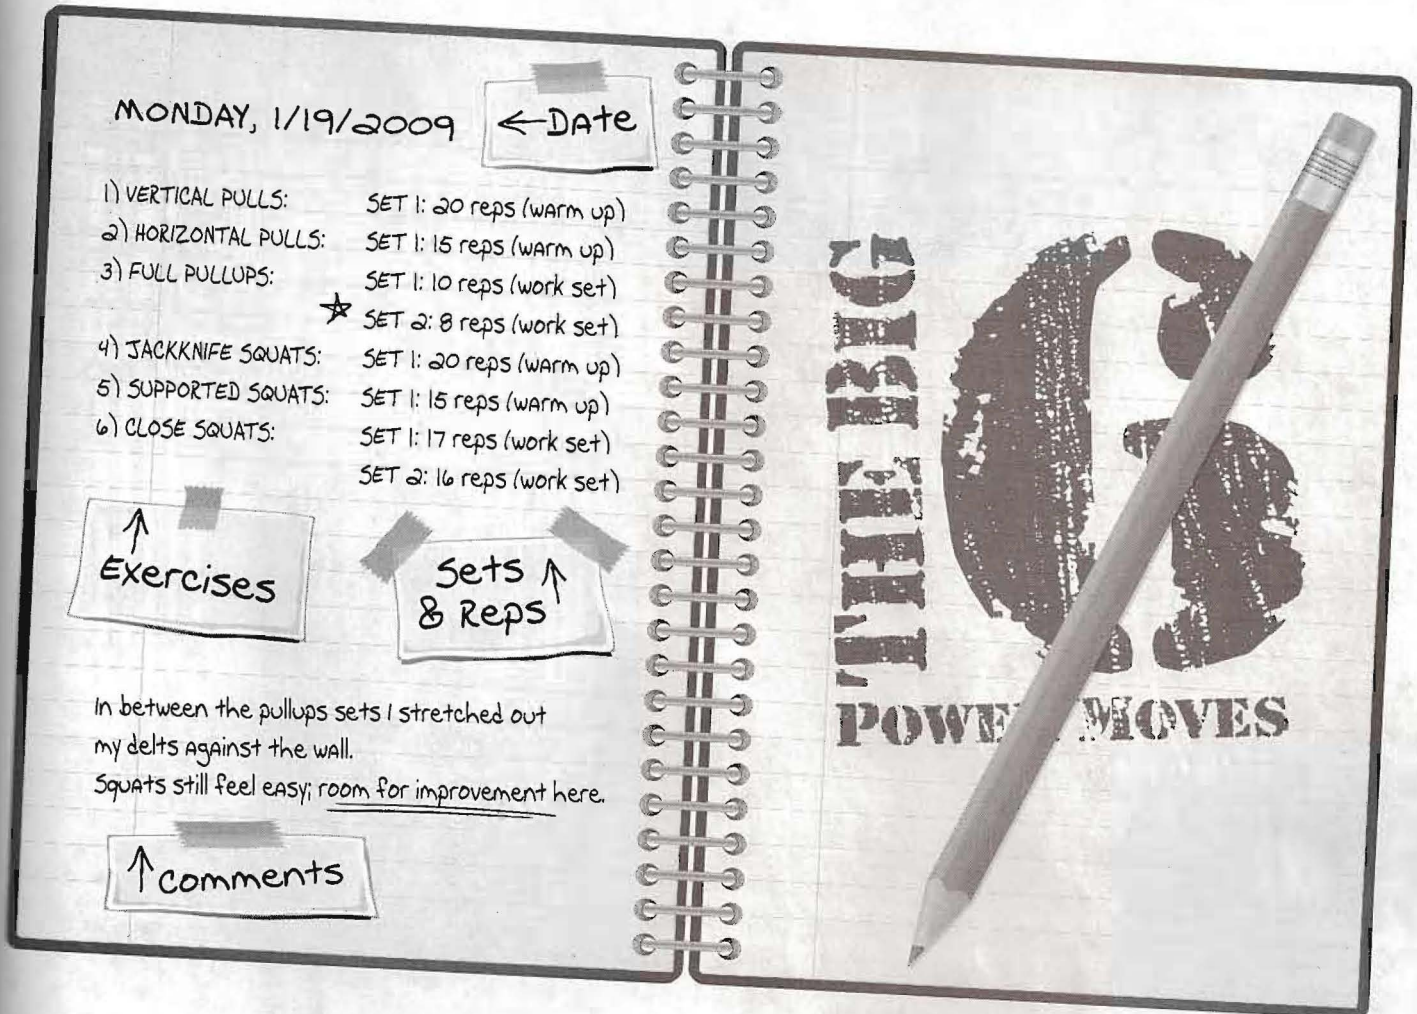 MONDAY, 1/19/2009
←DAte
1) VERTICAL PULLS: SET 1: 20 reps (wArm up)
2) HORIZONTAL PULLS: SET 1: 15 reps (wArm up)
3) FULL PULLUPS: SET 1: 10 reps (work set)
☆ SET 2: 8 reps (work set)
4) JACKKNIFE SQUATS: SET 1: 20 reps (wArm up)
5) SUPPORTED SQUATS: SET 1: 15 reps (wArm up)
6) CLOSE SQUATS: SET 1: 17 reps (work set)
SET 2: 16 reps (work set)
↑
Exercises
Sets ↑
& Reps
In between the pullups sets I stretched out
my delts AgAinst the wAll.
SquAts still feel eAsy; room for improvement here.
↑ comments
THE BIG
6
POWER MOVES